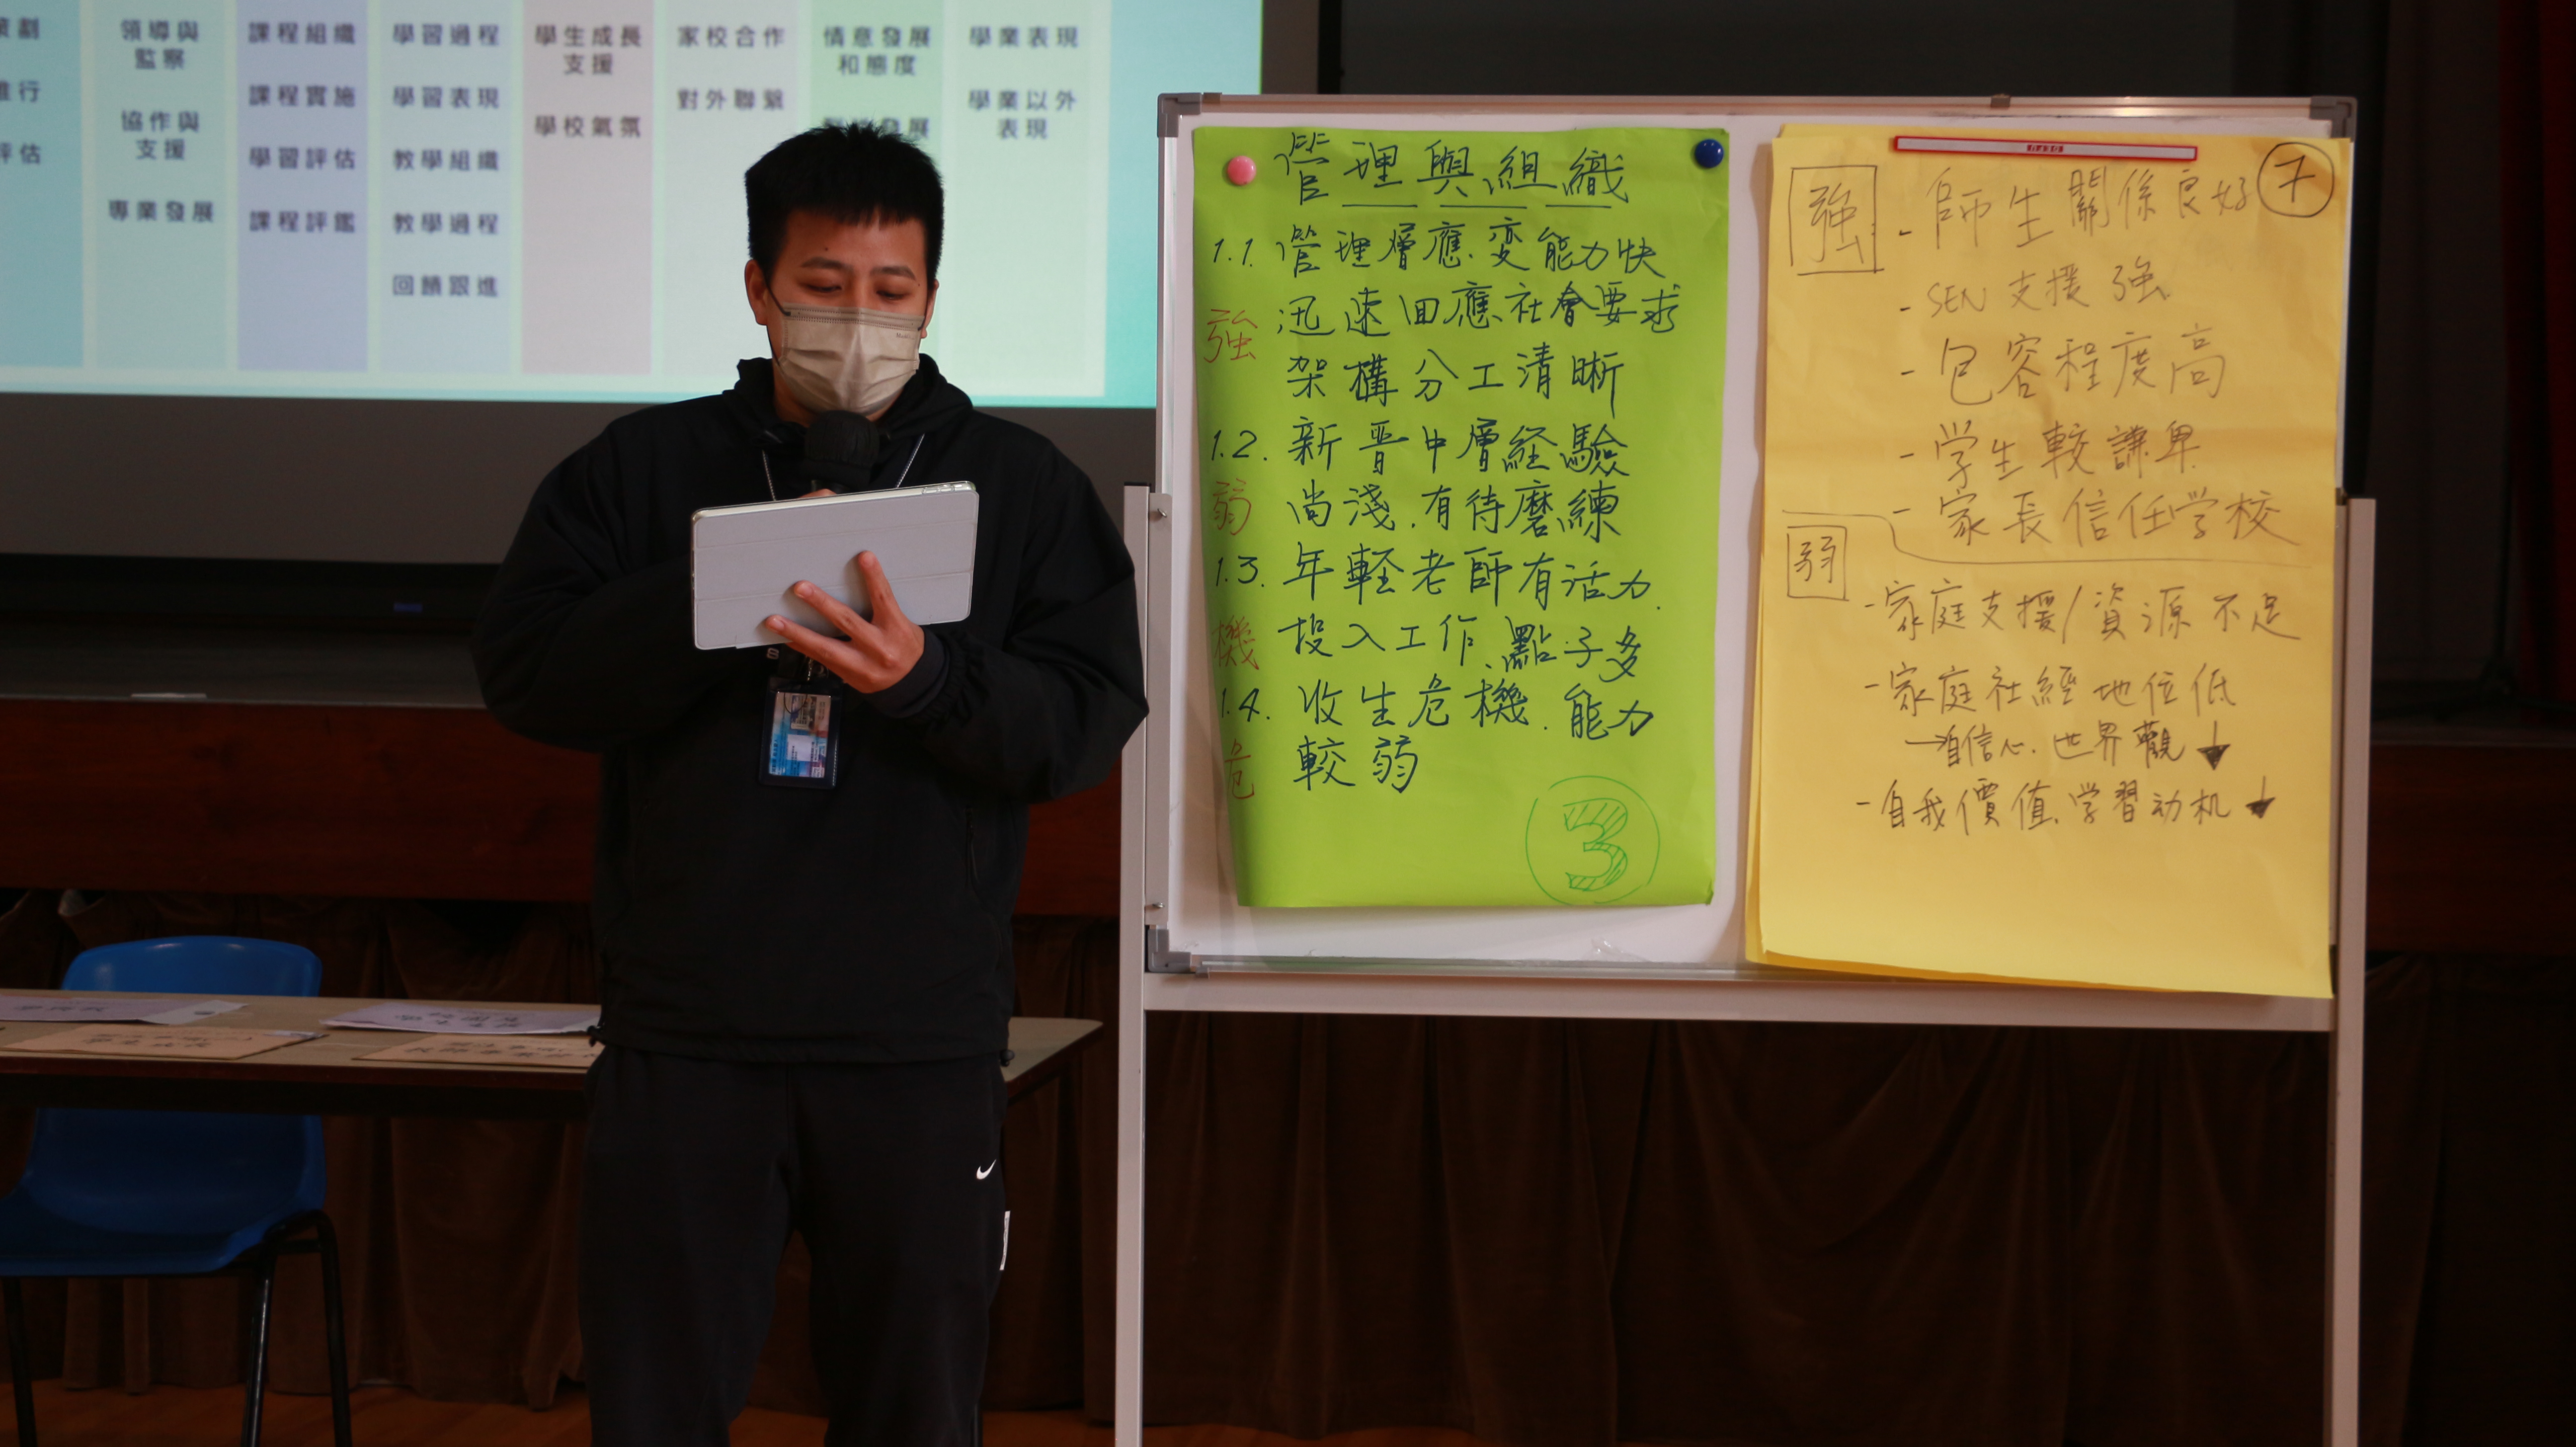 領導與
監察
協作與
支援
專業發展
課程組織
課程實施
學習評估
課程評鑑
學習過程
學習表現
教學組織
教學過程
回饋跟進
學生成長
支援
學校氣氛
家校合作
對外聯繫
情意發展
和態度
學業表現
學業以外
表現
管理與組織
1.1. 管理層應变能力快
強 迅速回應社會要求
架構分工清晰
1.2. 新晋中層経驗
弱 尚淺.有待磨練
1.3. 年輕老師有活力.
機 投入工作、點子多
1.4. 收生危機.能力
危 較弱
3
7
強 - 師生關係良好
- SEN 支援強
- 包容程度高
- 学生較謙卑
- 家長信任学校
弱
- 家庭支援/資源不足
- 家庭社經地位低
→自信心.世界觀↓
- 自我價值.学習动机↓